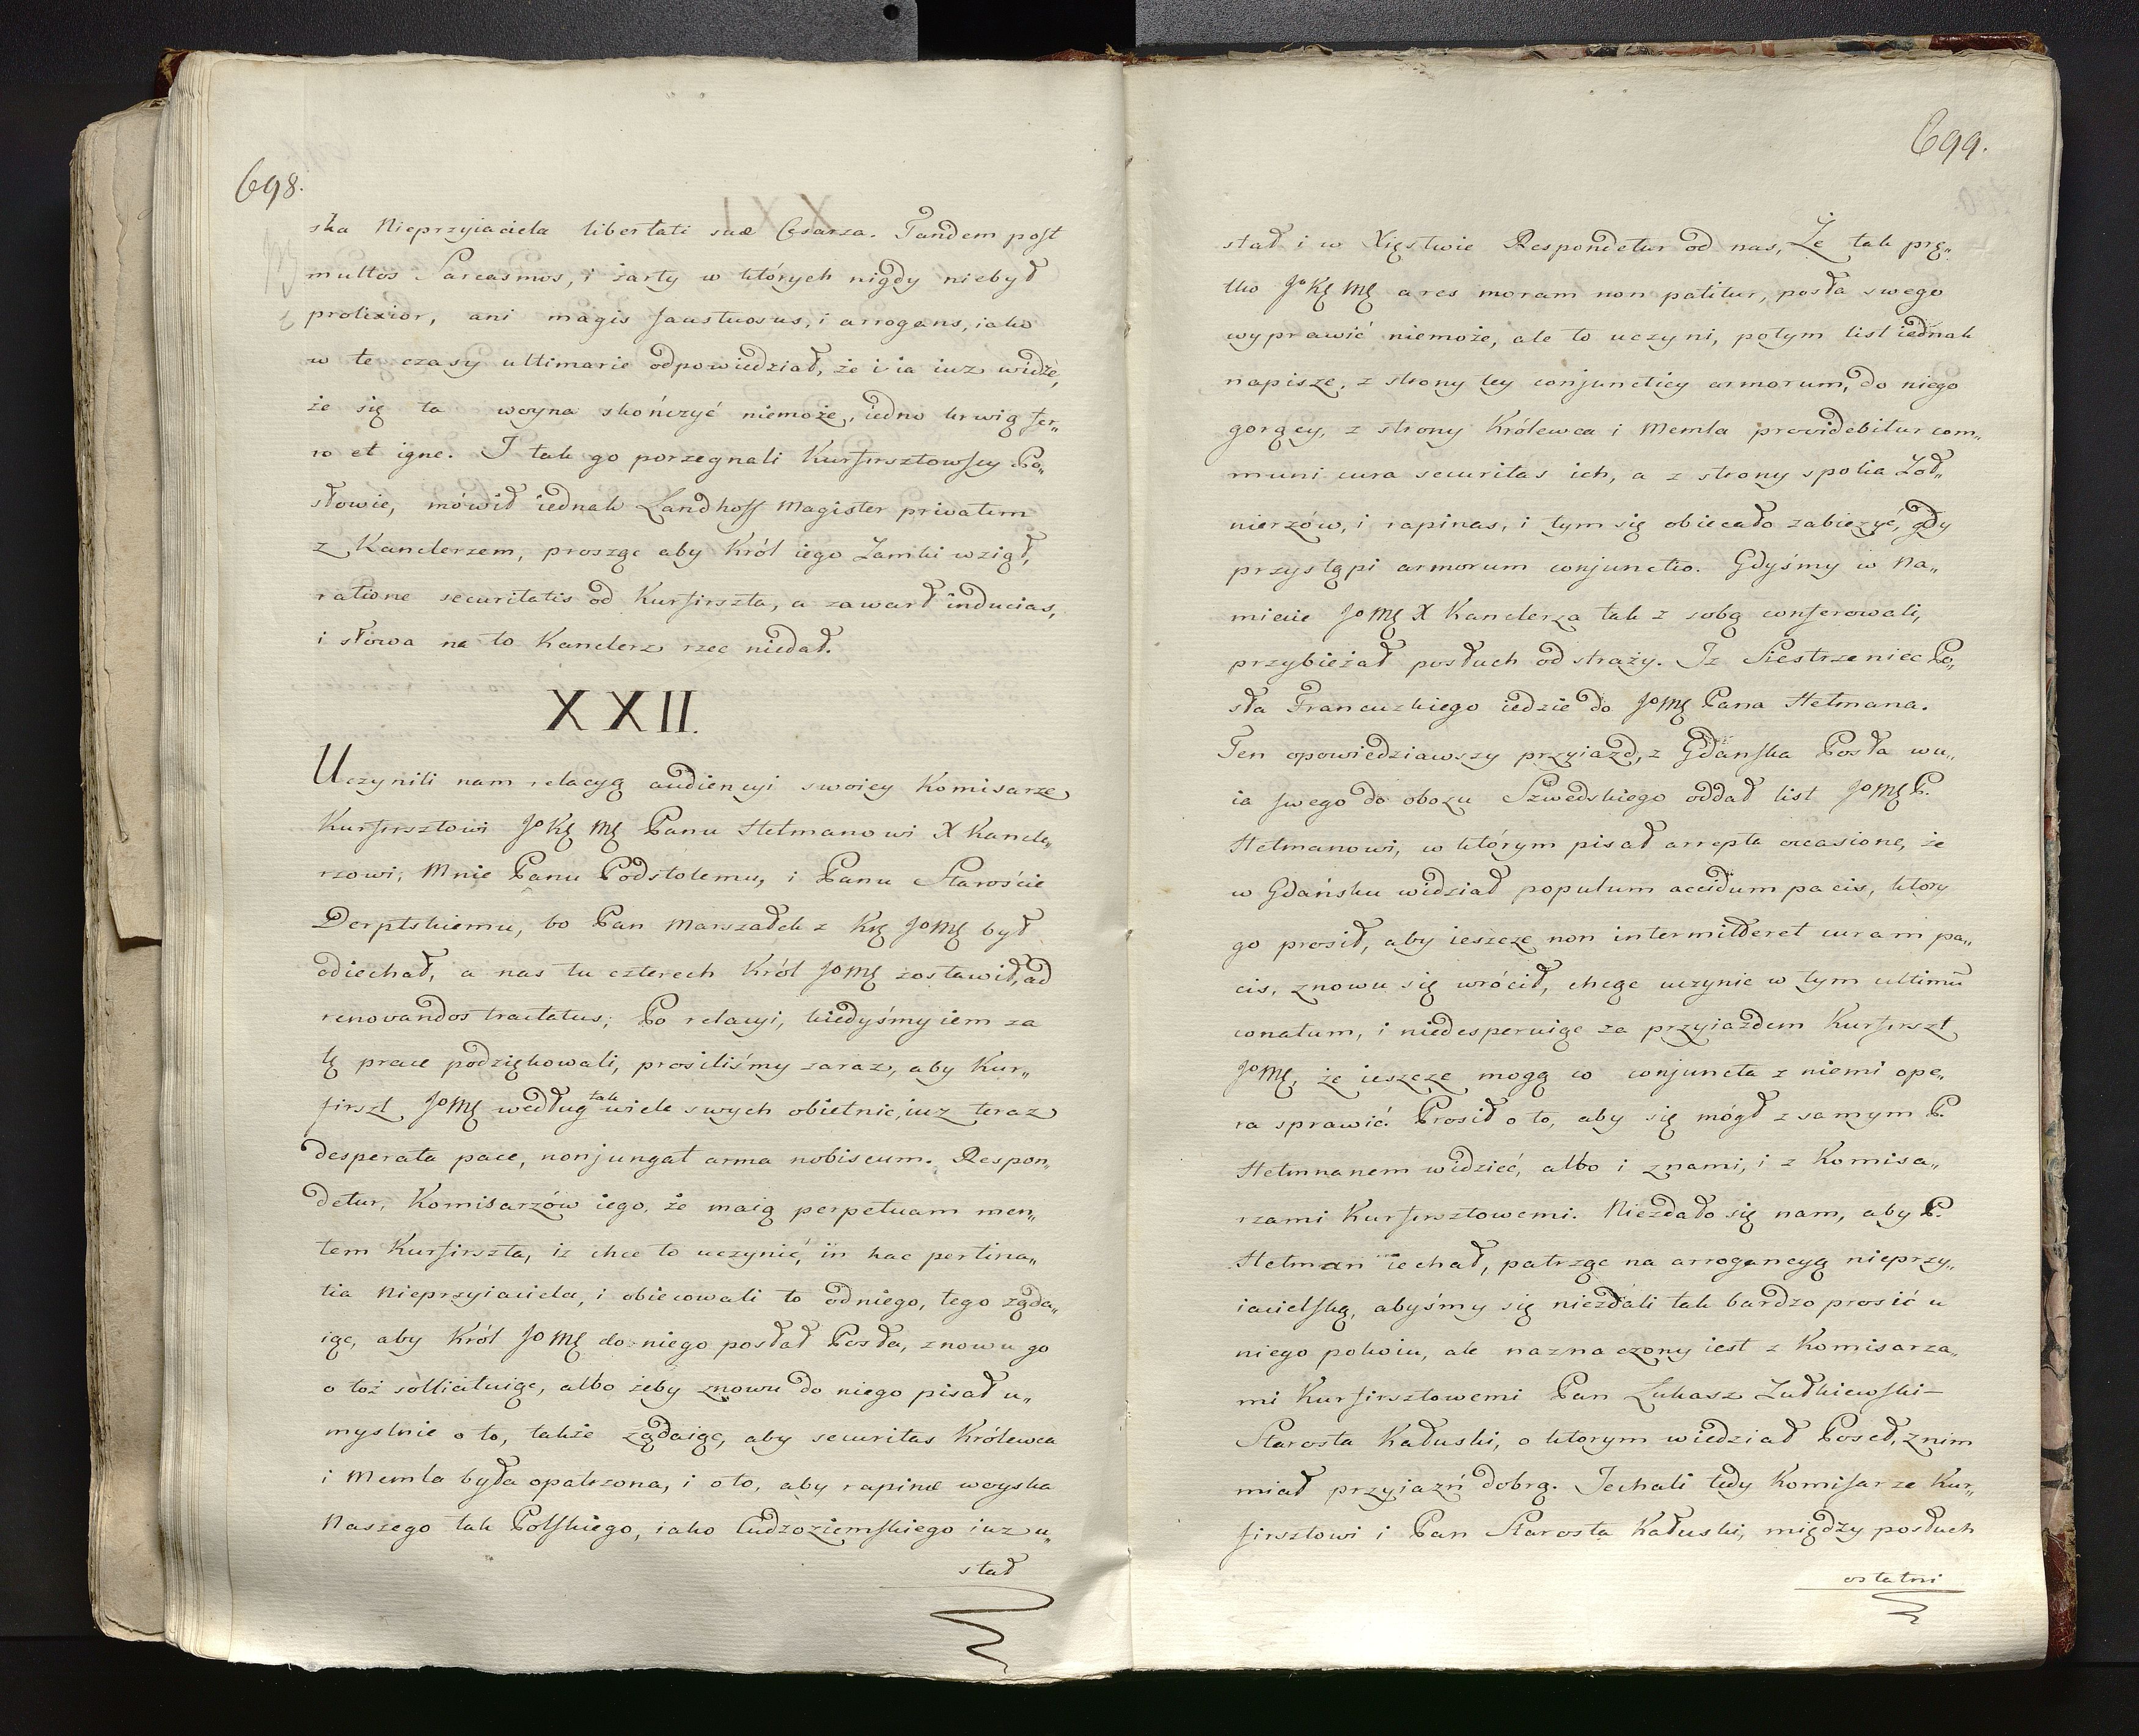 698.
ska Nieprzyiaciela libertati suæ Cesarza. Tandem post
multos Sarcasmos, i żarty w których nigdy niebył
prolixior, ani magis faustuosus, i arrogans, iako
w te czasy ultimarie odpowiedział, że i ia iuz widzę,
że się ta woyna skończyć niemoże, iedno krwią fer„
ro et igne. I tak go porzegnali Kurfirsztowscy Po„
słowie, mówił iednak Landhoff Magister privatim
z Kanclerzem, prosząc aby Król iego Zamki wziął,
ratione securitatis od Kurfirszta, a zawarł inducias,
i słowa na to Kanclerz rzec niedał.
XXII.
Uczynili nam relacyą audiencyi swoiey Komisarze
Kurfirsztowi JoKę Mę Panu Hetmanowi X Kancle„
rzowi, Mnie Panu Podstolemu, i Panu Staroście
Derptskiemu, bo Pan Marszałek z Kię JoMę był
odiechał, a nas tu czterech Król JoMę zostawił, ad
renovandos tractatus; Po relacyi, kiedyśmy iem za
tę prace podziękowali, prosiliśmy zaraz, aby Kur„
firszt JoMę według tak wiele swych obietnic, iuz teraz
desperata pace, nonjungat arma nobiscum. Respon„
detur, Komisarzów iego, że maią perpetuam men„
tem Kurfirszta, iz chce to uczynić, in hac pertina„
tia Nieprzyiaciela, i obiecowali to odniego, tego żąda„
iąc, aby Król JoMę do niego posłał Posła, znowu go
o toż sollicituiąc, albo żeby znowu do niego pisał u„
myslnie o to, także żądaiąc, aby securitas Królewca
i Memla była opatrzona, i o to, aby rapinæ woyska
Naszego tak Polskiego, iako Cudzoziemskiego iuz u„
stał
699.
stał i w Xięstwie Respondetur od nas, Że tak prę„
tko JoKę Mę a res moram non patitur, posła swego
wyprawić niemoże, ale to uczyni, potym list iednak
napisze, z strony tey conjunctiey armorum, do niego
gorący, z strony Królewca i Memla providebitur com„
muni cura securitas ich, a z strony spolia Żoł„
nierzów, i rapinas, i tym się obiecało zabieżyć, gdy
przystąpi armorum conjunctio. Gdyśmy w Na„
miecie JoMę X Kanclerza tak z sobą conferowali,
przybieżał posłuch od straży. Iz Siestrzeniec Po„
sła Francuzkiego iedzie do JoMę Pana Hetmana.
Ten opowiedziawszy przyiazd, z Gdańska Posła wu„
ia swego do obozu Szwedskiego oddał list JoMę P.
Hetmanowi, w którym pisał arrepta occasione, że
w Gdańsku widział populum accidum pacis, ktory
go prosił, aby ieszcze non intermitteret curam pa„
cis, znowu się wrócił, chcąc uczynic w tym ultimū
conatum, i niedesperuiąc za przyiazdem Kurfirszt
JoMę, że ieszcze mogą co conjuncta z niemi ope„
ra sprawić. Prosił o to, aby się mógł z samym P.
Hetmnanem widzieć, albo i znami, i z Komisa„
rzami Kurfirsztowemi. Niezdało się nam, aby P.
Hetman iechał, patrząc na arrogancyą nieprzy„
iacielską, abyśmy się niezdali tak bardzo prosić u
niego pokoiu, ale naznaczony iest z Komisarza„
mi Kurfirsztowemi Pan Łukasz Żułkiewski
Starosta Kałuski, o ktorym wiedział Poseł, znim
miał przyiazń dobrą. Jechali tedy Komisarze Kur„
firsztowi i Pan Starosta Kałuski, między posłuch
ostatni